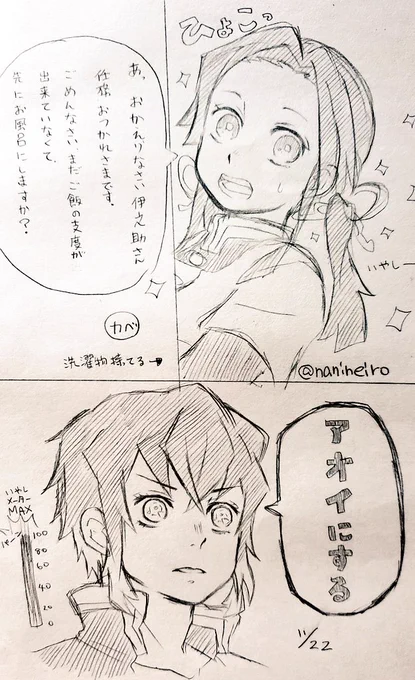 ひょこっ
あ、おかえりなさい伊之助さん
任務おつかれさまです。
ごめんなさい、まだご飯の支度が
出来ていなくて、
先にお風呂にしますか?
いやしー
カベ
洗濯物
@naniheiro
アオイにする
いやし
メーター
MAX
100
80
60
40
20
0
11/22